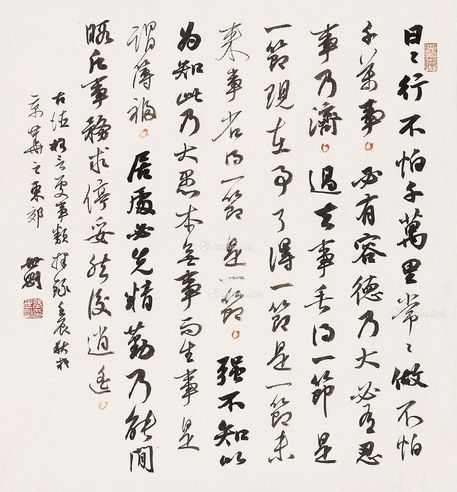 日〻行不怕千萬里常〻做不怕
千萬事。必有容德乃大必有忍
事乃濟。過去事丢得一節是
一節現在事了得一節是一節未
来事省得一節是一節。强不知以
为知此乃大愚本無事而生事是
謂薄福。居處必先精勤乃能閒
暇凡事務求停妥然後逍遥。
古德格言處事類擇録壬辰秋於
京華之東郊